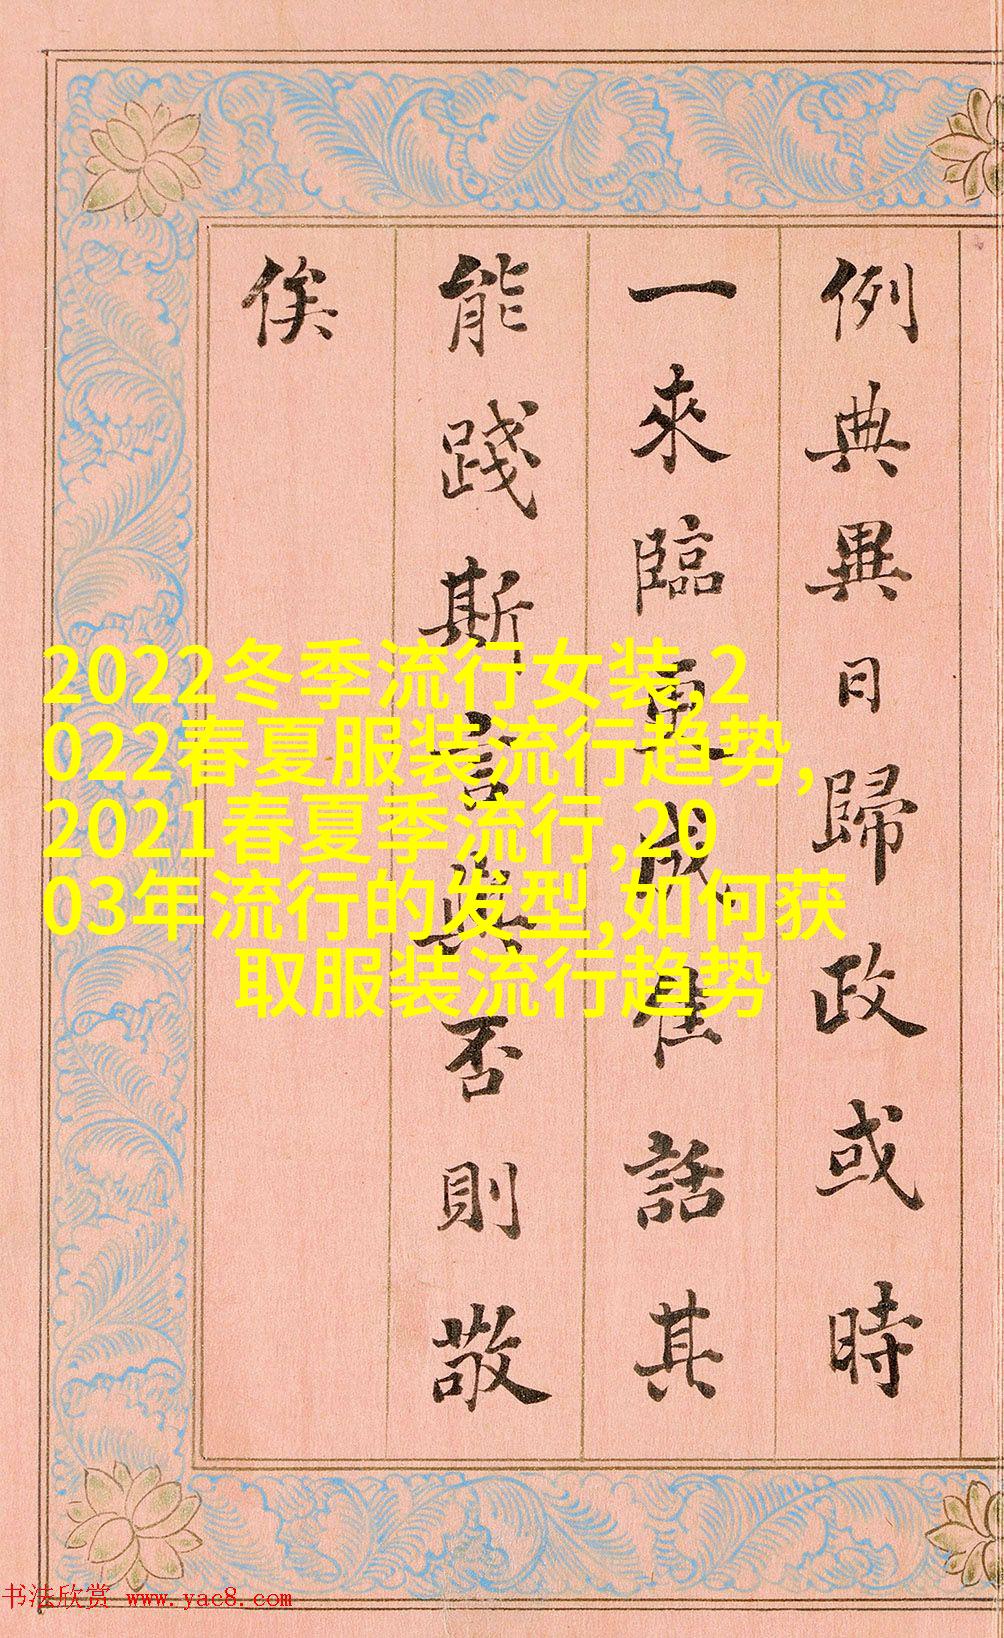 例典異日歸政或時
一來臨更成佳話其
能踐斯言與否則敬
俟
2022冬季流行女装,2
022春夏服装流行趋势,
2021春夏季流行,20
03年流行的发型,如何获
取服装流行趋势
书法欣赏 www.yac8.com